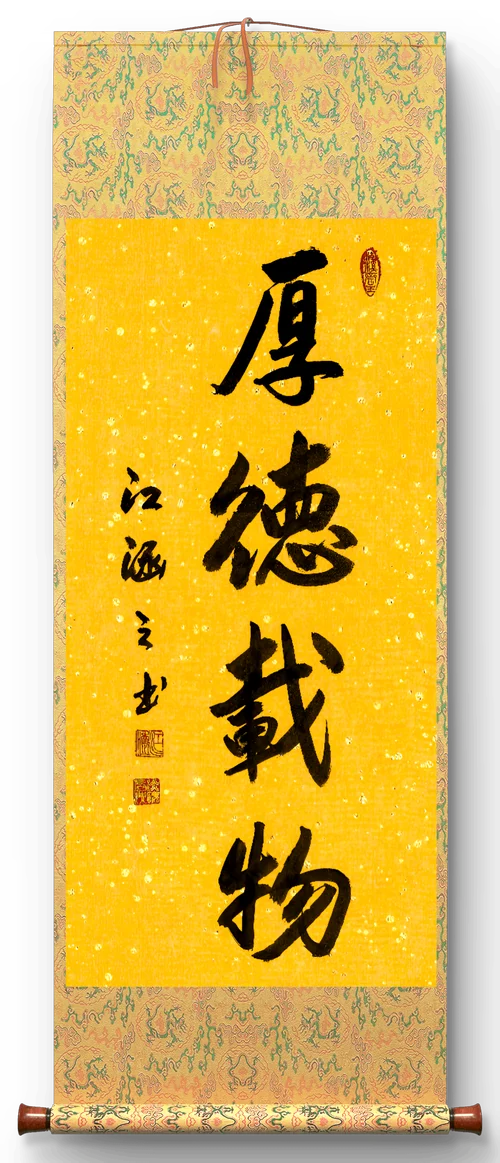 厚德載物
江涵之书